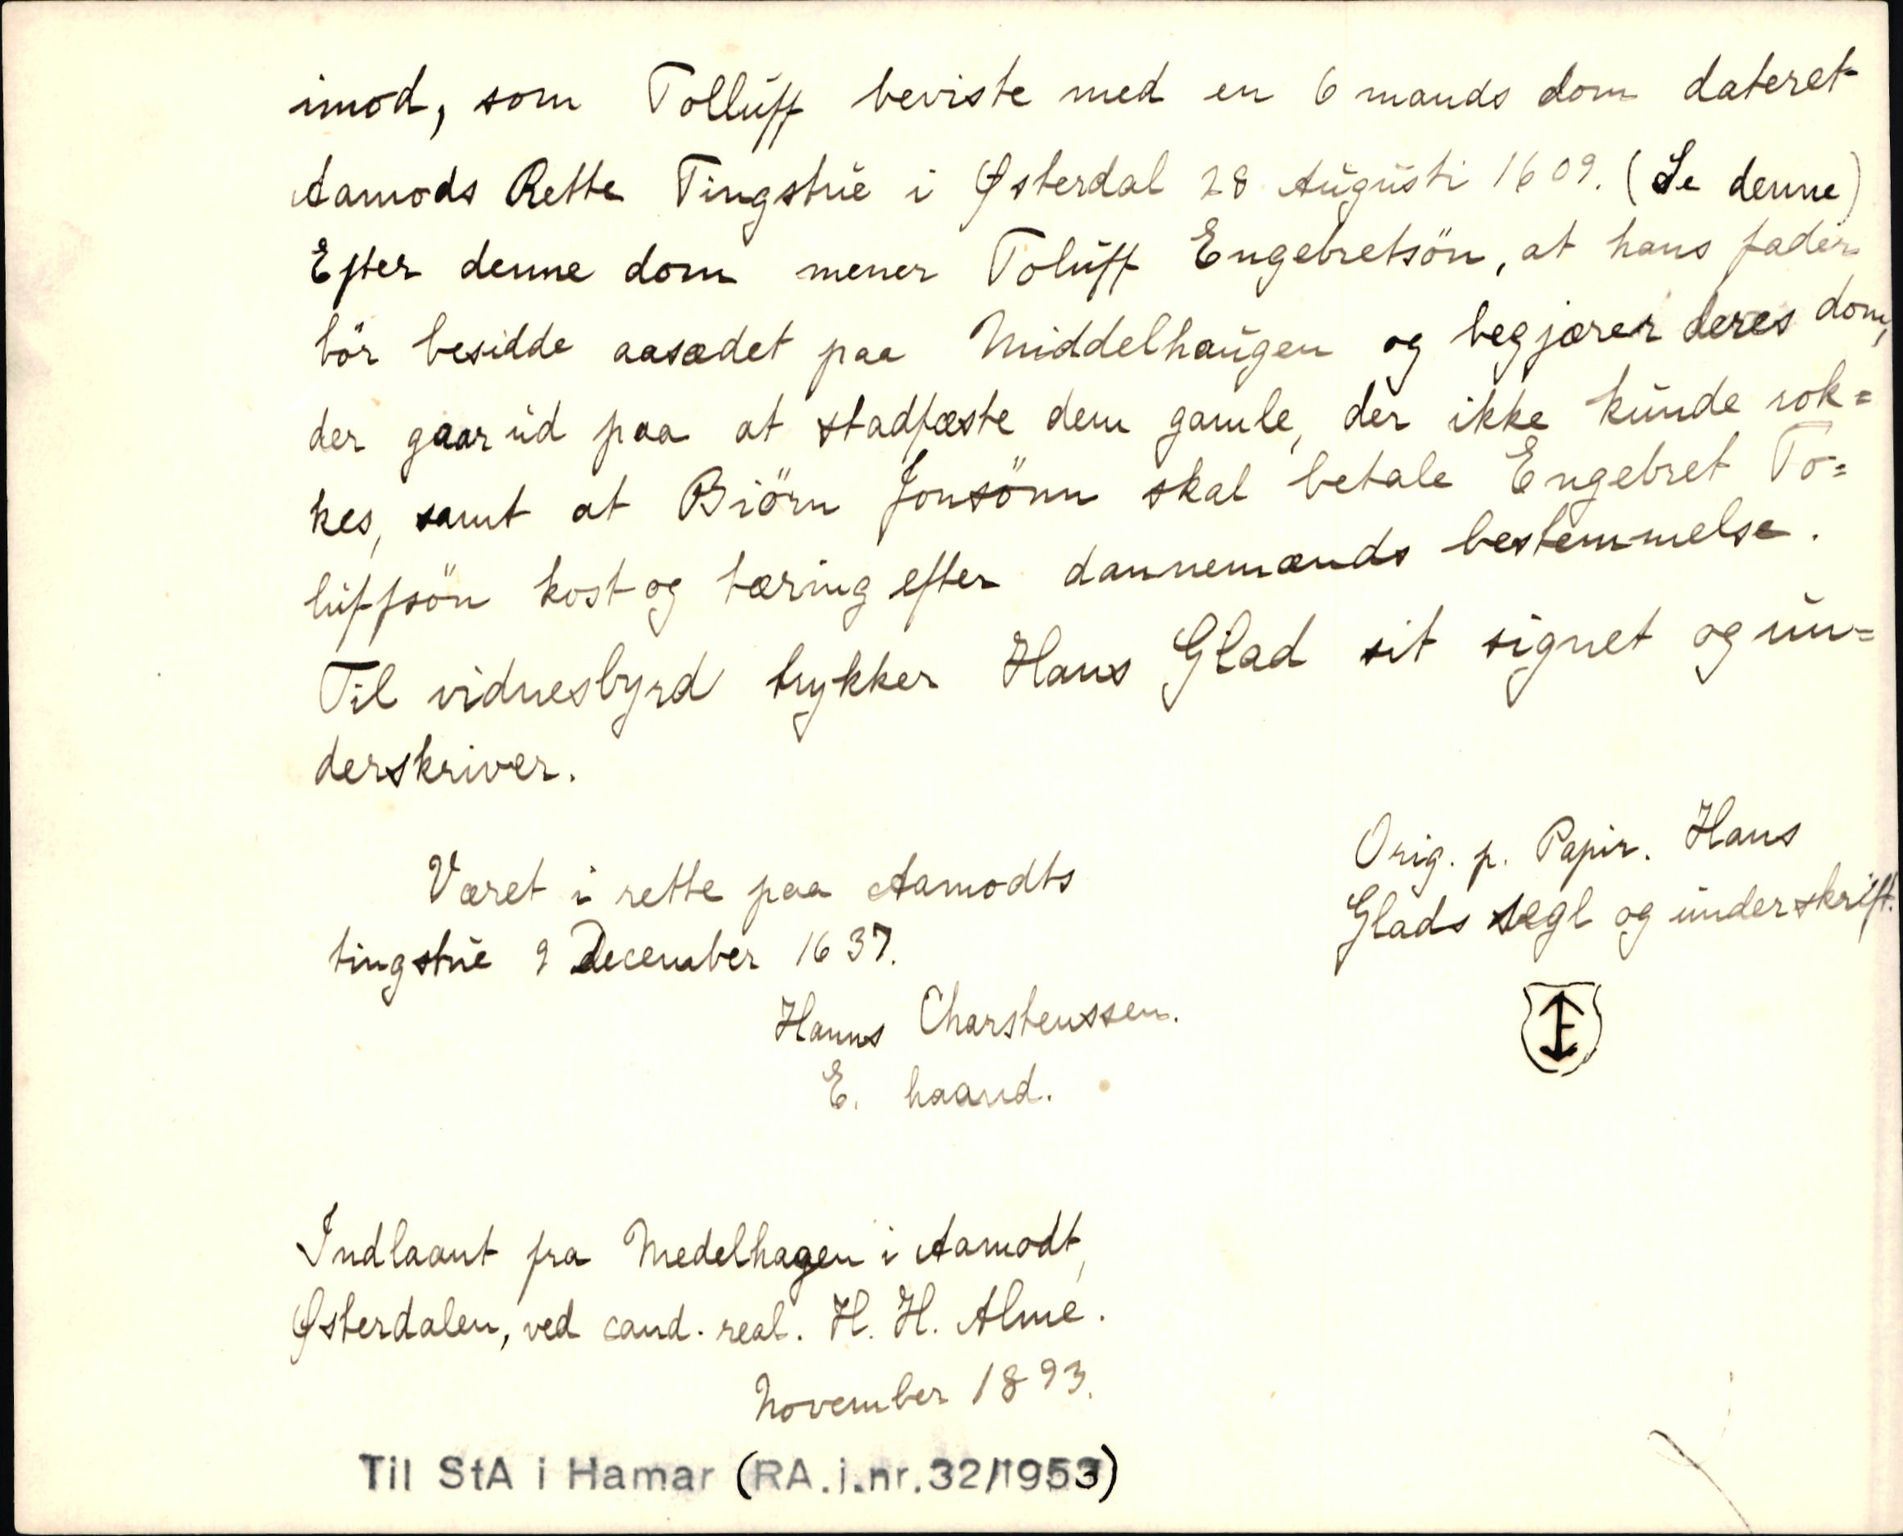 imod, som Tolluff beviste med en 6 mands dom dateret
Aamods Rette Tingstue i Østerdal 28 Augusti 1609. (Se denne)
Efter denne dom mener Toluff Engebretsön, at hans fader
bör besidde aasædet paa Middelhaugen og begjærer deres dom,
der gaar ud paa at stadfæste dem gamle, der ikke kunde rok=
kes, samt at Biörn Jonsönn skal betale Engebret To=
luffsön kost og tæring efter dannemænds bestemmelse.
Til vidnesbyrd trykker Hans Glad sit signet og un=
derskriver.
Orig. p. Papir. Hans
Glads segl og underskrift.
Været i rette paa Aamodts
tingstue 9 December 1637.
Hanns Charstenssen.
E. haand.
Indlaant fra Medelhagen i Aamodt,
Østerdalen, ved cand. real. H. H. Alme.
November 1893.
Til StA i Hamar (RA.j.nr.32/1953)